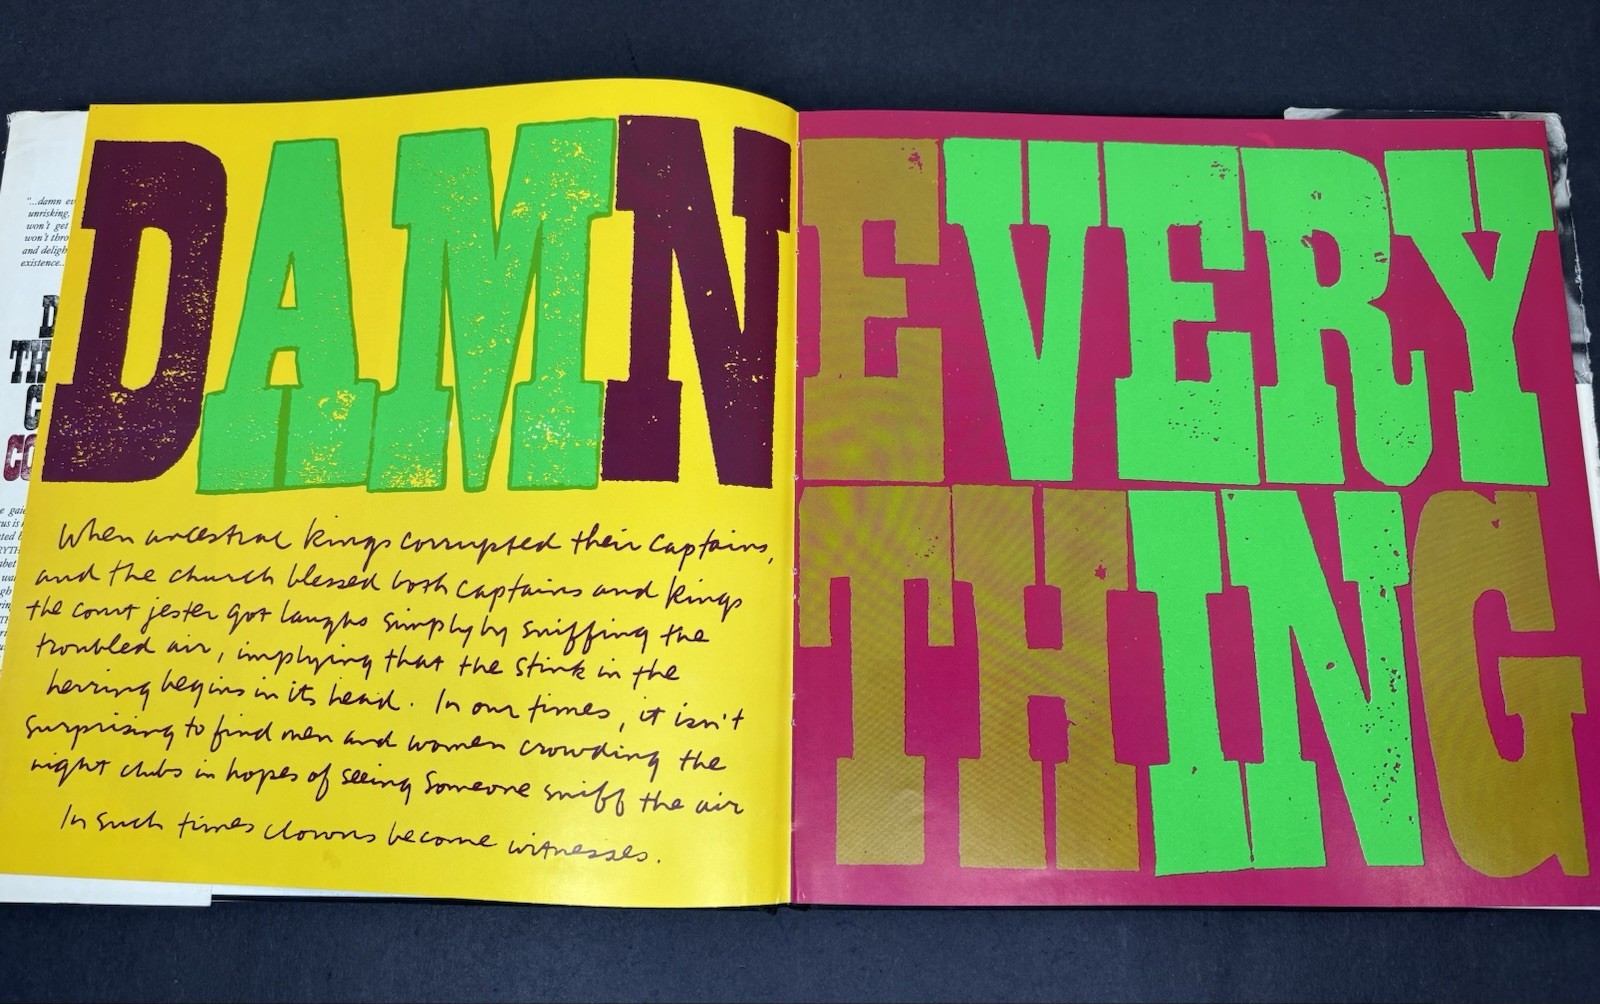 "...damn ev
unrisking,
won't get
won't thro
and deligh
existence..
D
TH
C
CO
DAMN
When ancestral kings corrupted their captains,
and the church blessed both captains and kings
the court jester got laughs simply by sniffing the
troubled air, implying that the stink in the
herring begins in its head. In our times, it isn't
surprising to find men and women crowding the
night clubs in hopes of seeing someone sniff the air
In such times clowns become witnesses.
EVERY
THING